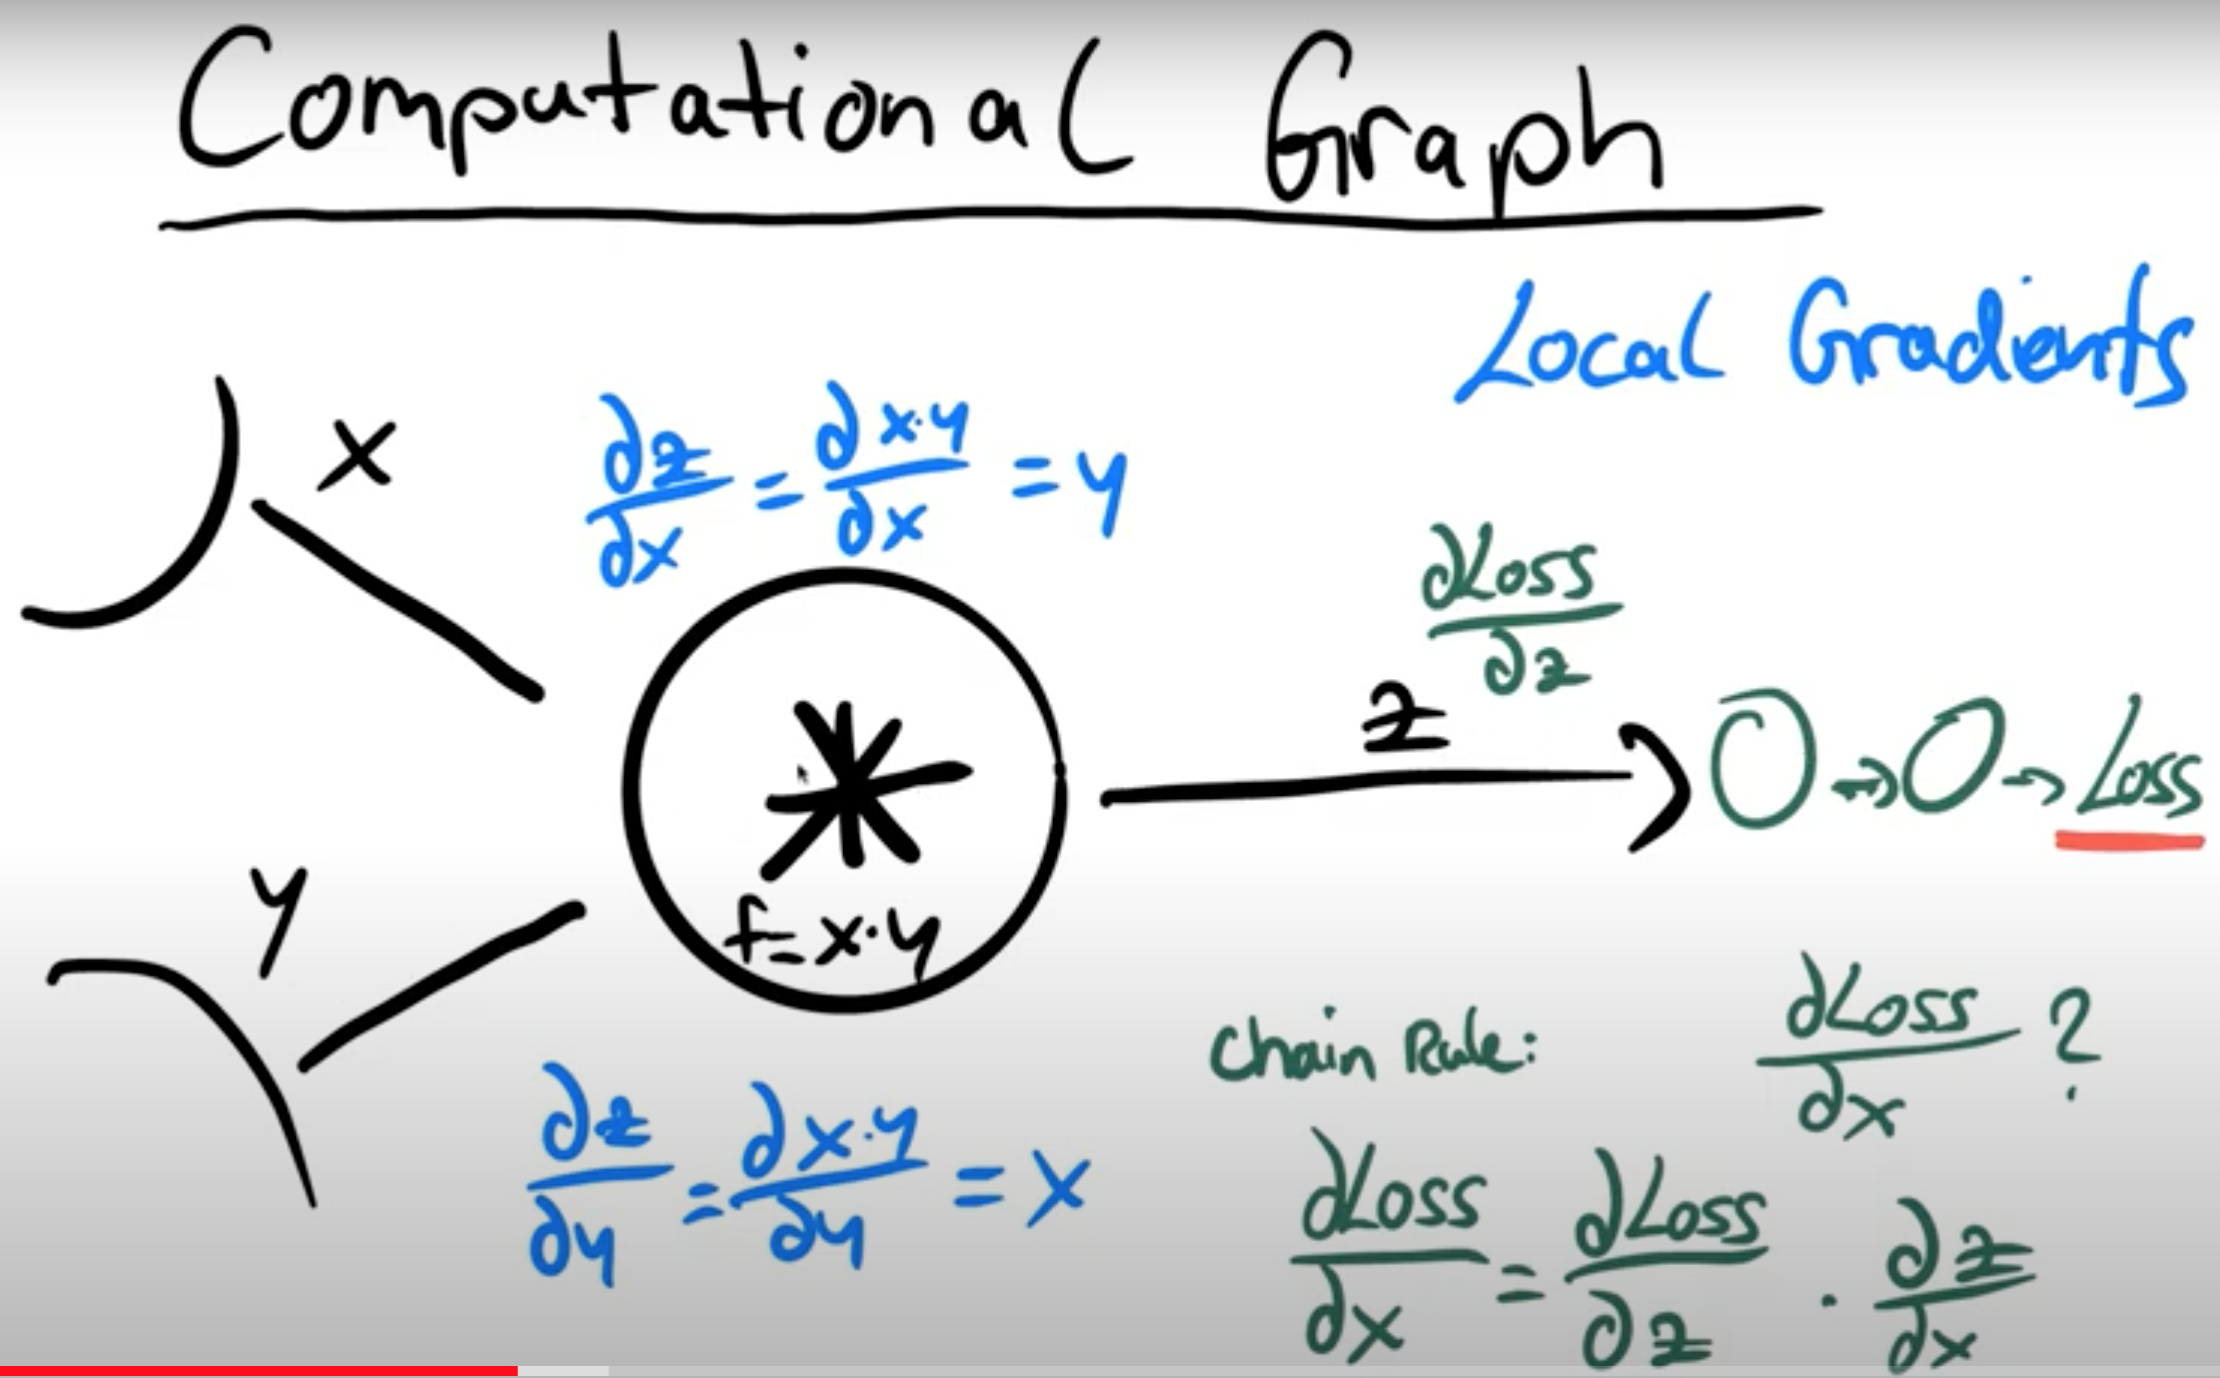 Computational Graph
Local Gradients
x
∂z/∂x = ∂x·y/∂x = y
∂Loss/∂z
z
O → O → Loss
*
f = x·y
y
∂z/∂y = ∂x·y/∂y = x
Chain Rule: ∂Loss/∂x ?
∂Loss/∂x = ∂Loss/∂z · ∂z/∂x